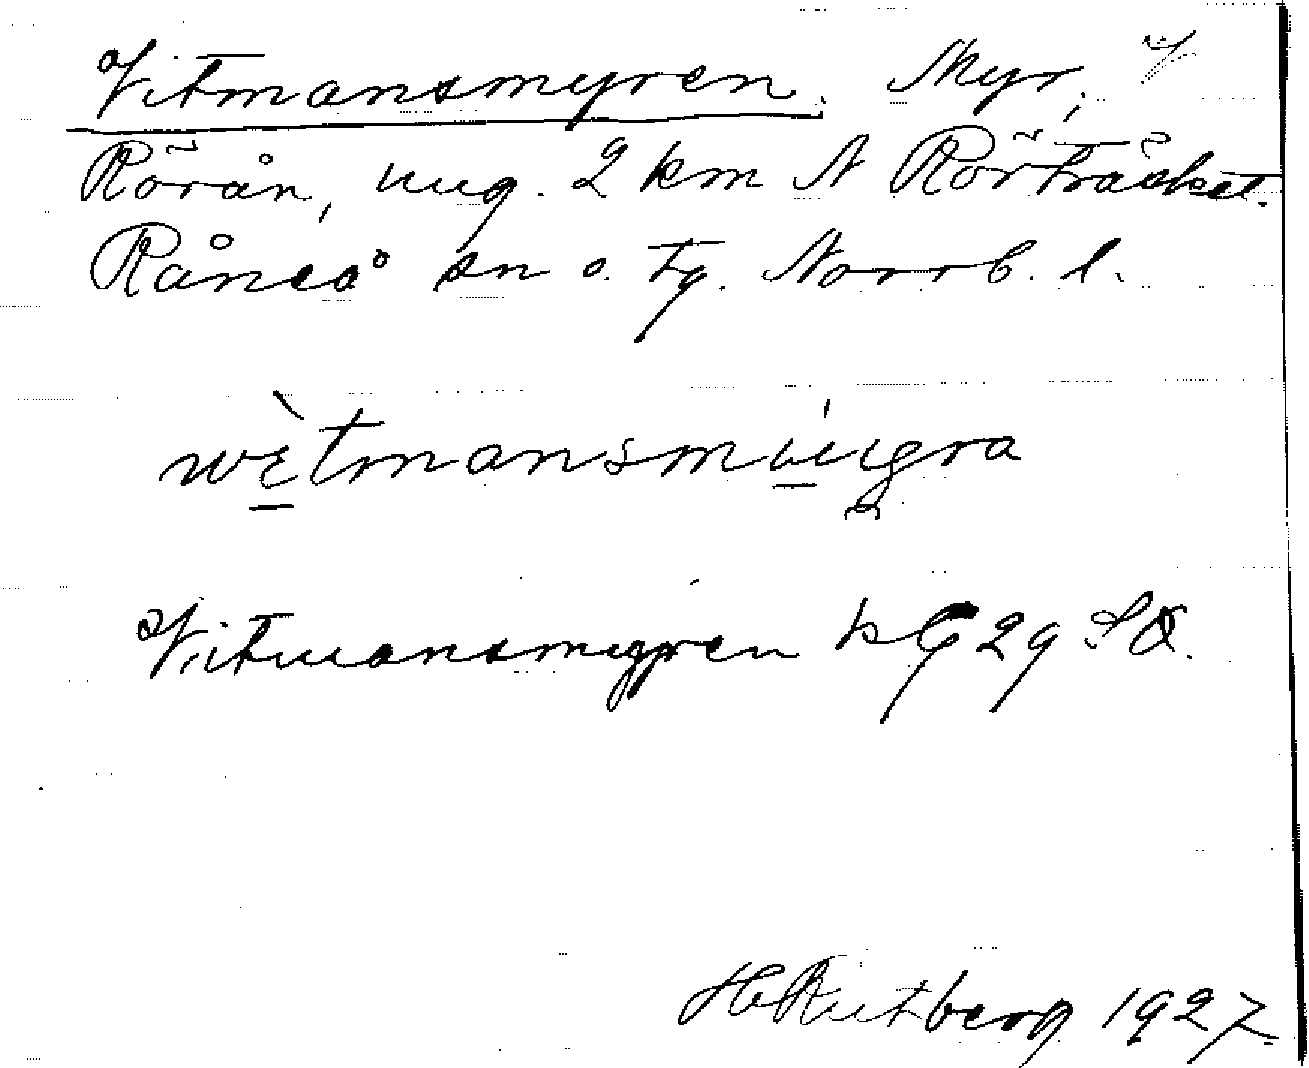 Vitmansmyren. Myr, V
Rörån, ung. 2 km N Rörträsket.
Råneå sn o. tg. Norrb. l.
wètmansmúigra
Vitmansmyren kG 29 SO.
H Rutberg 1927